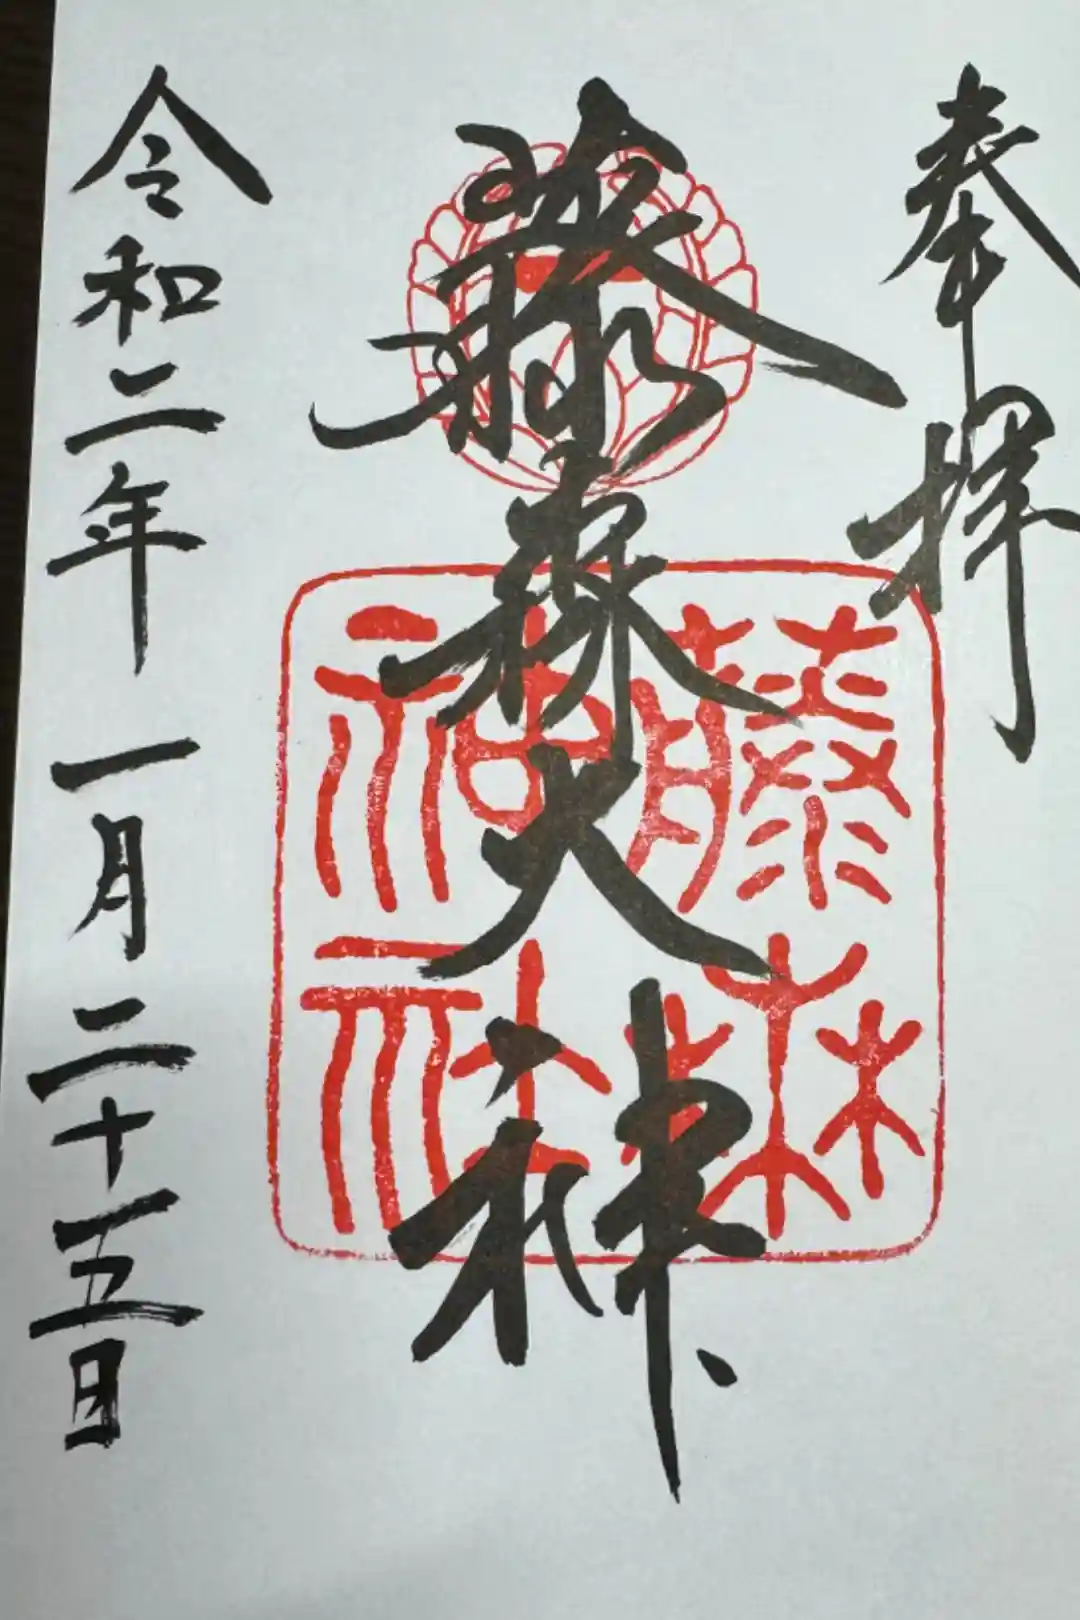 奉拝
藤森大神
藤森
神社
令和二年一月二十五日